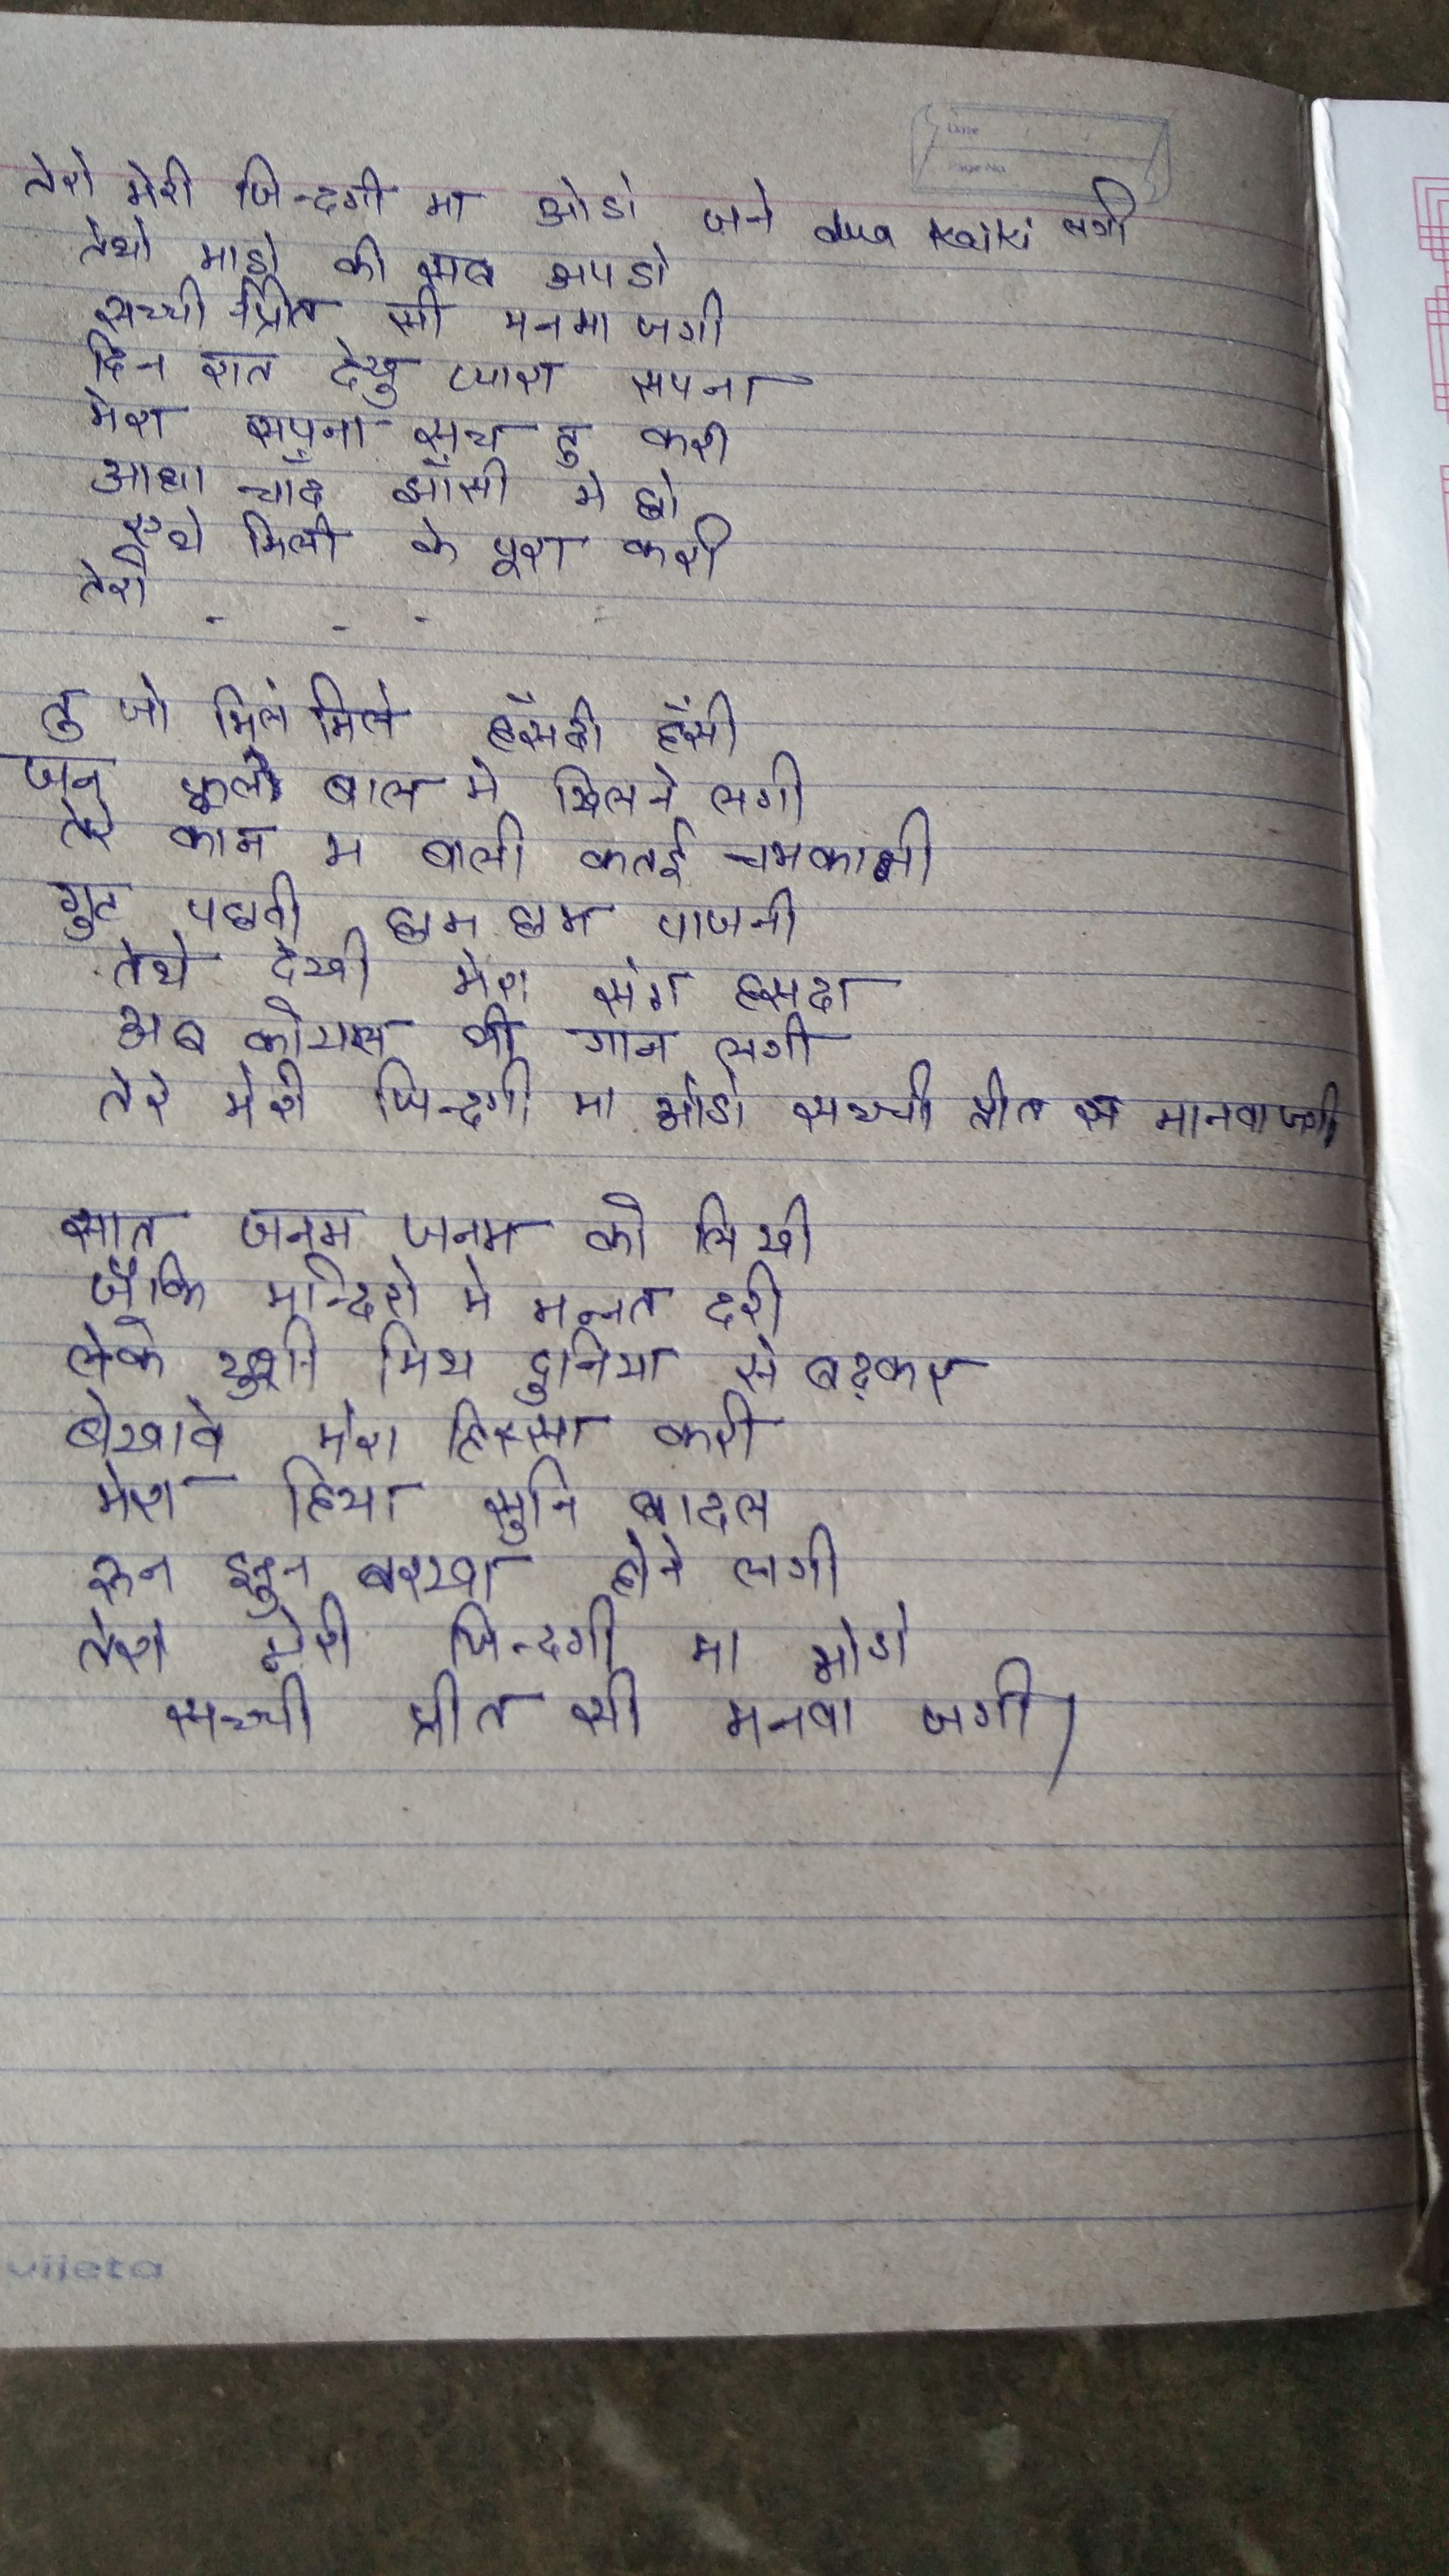 Date
Page No.
तेरो मेरी जिन्दगी मा ओडो जने dua kaiki लगी
तेथो माडो की साव अपडो
सच्ची प्रित सी मनमा जगी
दिन रात देखु प्यारा सपना
मेरा सपना सच तु करी
आधा चाँद झाँसी मे छो
एथे मिली के पूरा करी
तेरो - - -
तु जो मिले मिले हँसदी हँसी
जन फूलो बाल मे खिलने लगी
तेरे कान म बाली कतई चमकासी
गुट पछती छम छम पाजनी
तेथे देखी मेरा संग हसदा
अब कोयल बी गान लगी
तेरे मेरी जिन्दगी मा ओडो सच्ची प्रीत स मानवा जगी
सात जनम जनम को लिखी
जैकि मन्दिरो मे मन्नत दरी
लेके खुशी मिथ दुनिया से बढ़कर
बेखावे मेरा हिस्सा करी
मेरा हिया सुनि बादल
रुन झुन बरखा होने लगी
तेरा मेरी जिन्दगी मा ओडो
सच्ची प्रीत सी मनवा जगी
vijeta